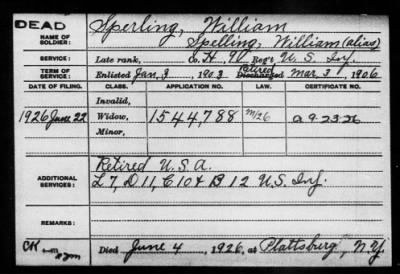 DEAD
NAME OF SOLDIER: Sperling, William
Spelling, William (alias)
SERVICE: Late rank, Co. H, 9th Reg't U. S. Inf.
TERM OF SERVICE: Enlisted Jan. 3, 1903 Retired Discharged Mar. 31, 1906
DATE OF FILING. CLASS. APPLICATION NO. LAW. CERTIFICATE NO.
Invalid,
1926 June 22 Widow, 1544,788 A 9-23-26
Minor,
ADDITIONAL SERVICES: Retired U.S.A.
L 7, D 11, C 10 & B 12 U.S. Inf.
REMARKS:
Died June 4, 1926, at Plattsburg, N.Y.